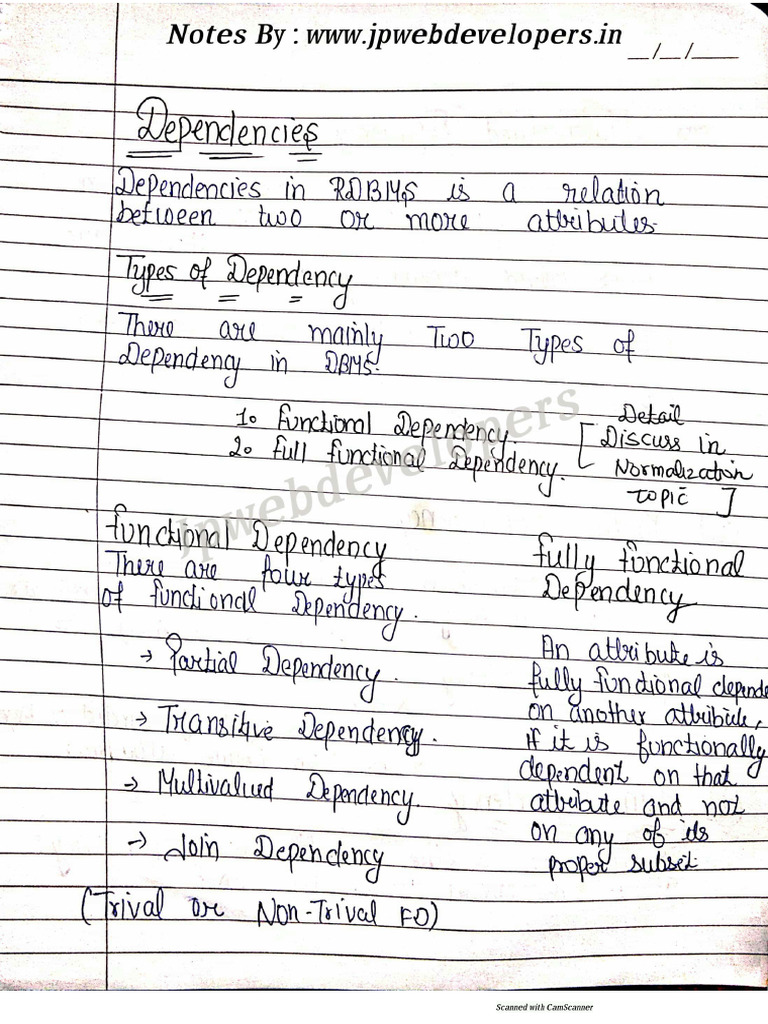 Notes By : www.jpwebdevelopers.in
__/__/____
Dependencies
Dependencies in RDBMS is a relation
between two or more attributes.
Types of Dependency
There are mainly Two Types of
Dependency in DBMS.
1. Functional Dependency
2. Full functional Dependency.
[ Detail
Discuss in
Normalization
topic ]
jpwebdevelopers
functional Dependency
There are four types
of functional Dependency.
→ Partial Dependency.
→ Transitive Dependency.
→ Multivalued Dependency.
→ Join Dependency
(Trival or Non-Trival FD)
fully functional
Dependency
An attribute is
fully functional depende
on another attribute,
if it is functionally
dependent on that
attribute and not
on any of its
proper subset.
Scanned with CamScanner